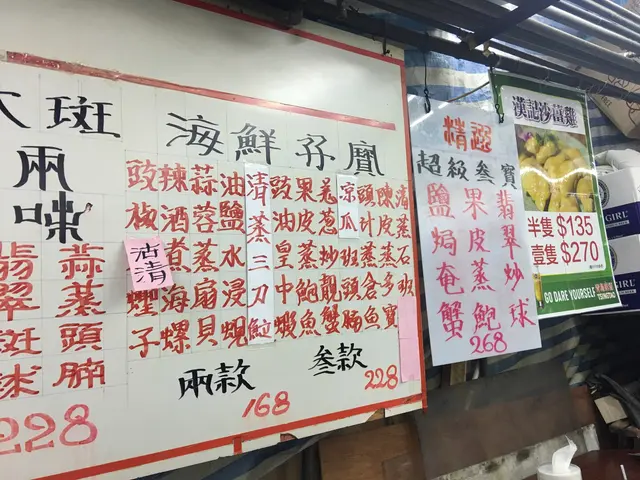 斑
兩
味
翡翠斑球
蒜蒸頭腩
228
海鮮孖寶
豉椒
沽清
蟶子
辣酒煮海螺
蒜蓉蒸扇貝
油鹽水浸蜆
清蒸三刀鱲
豉油皇中蝦
果皮蒸鮑魚
羌葱炒靚蟹
涼瓜班頭腩
頭汁蒸倉魚
陳皮蒸多寶
清蒸石班
兩款
168
叁款
228
精選
超級叁寶
鹽焗奄蟹
果皮蒸鮑
翡翠炒球
268
漢記沙薑雞
半隻 $135
壹隻 $270
GO DARE YOURSELF
TSINGTAO
GIRL
GIRL